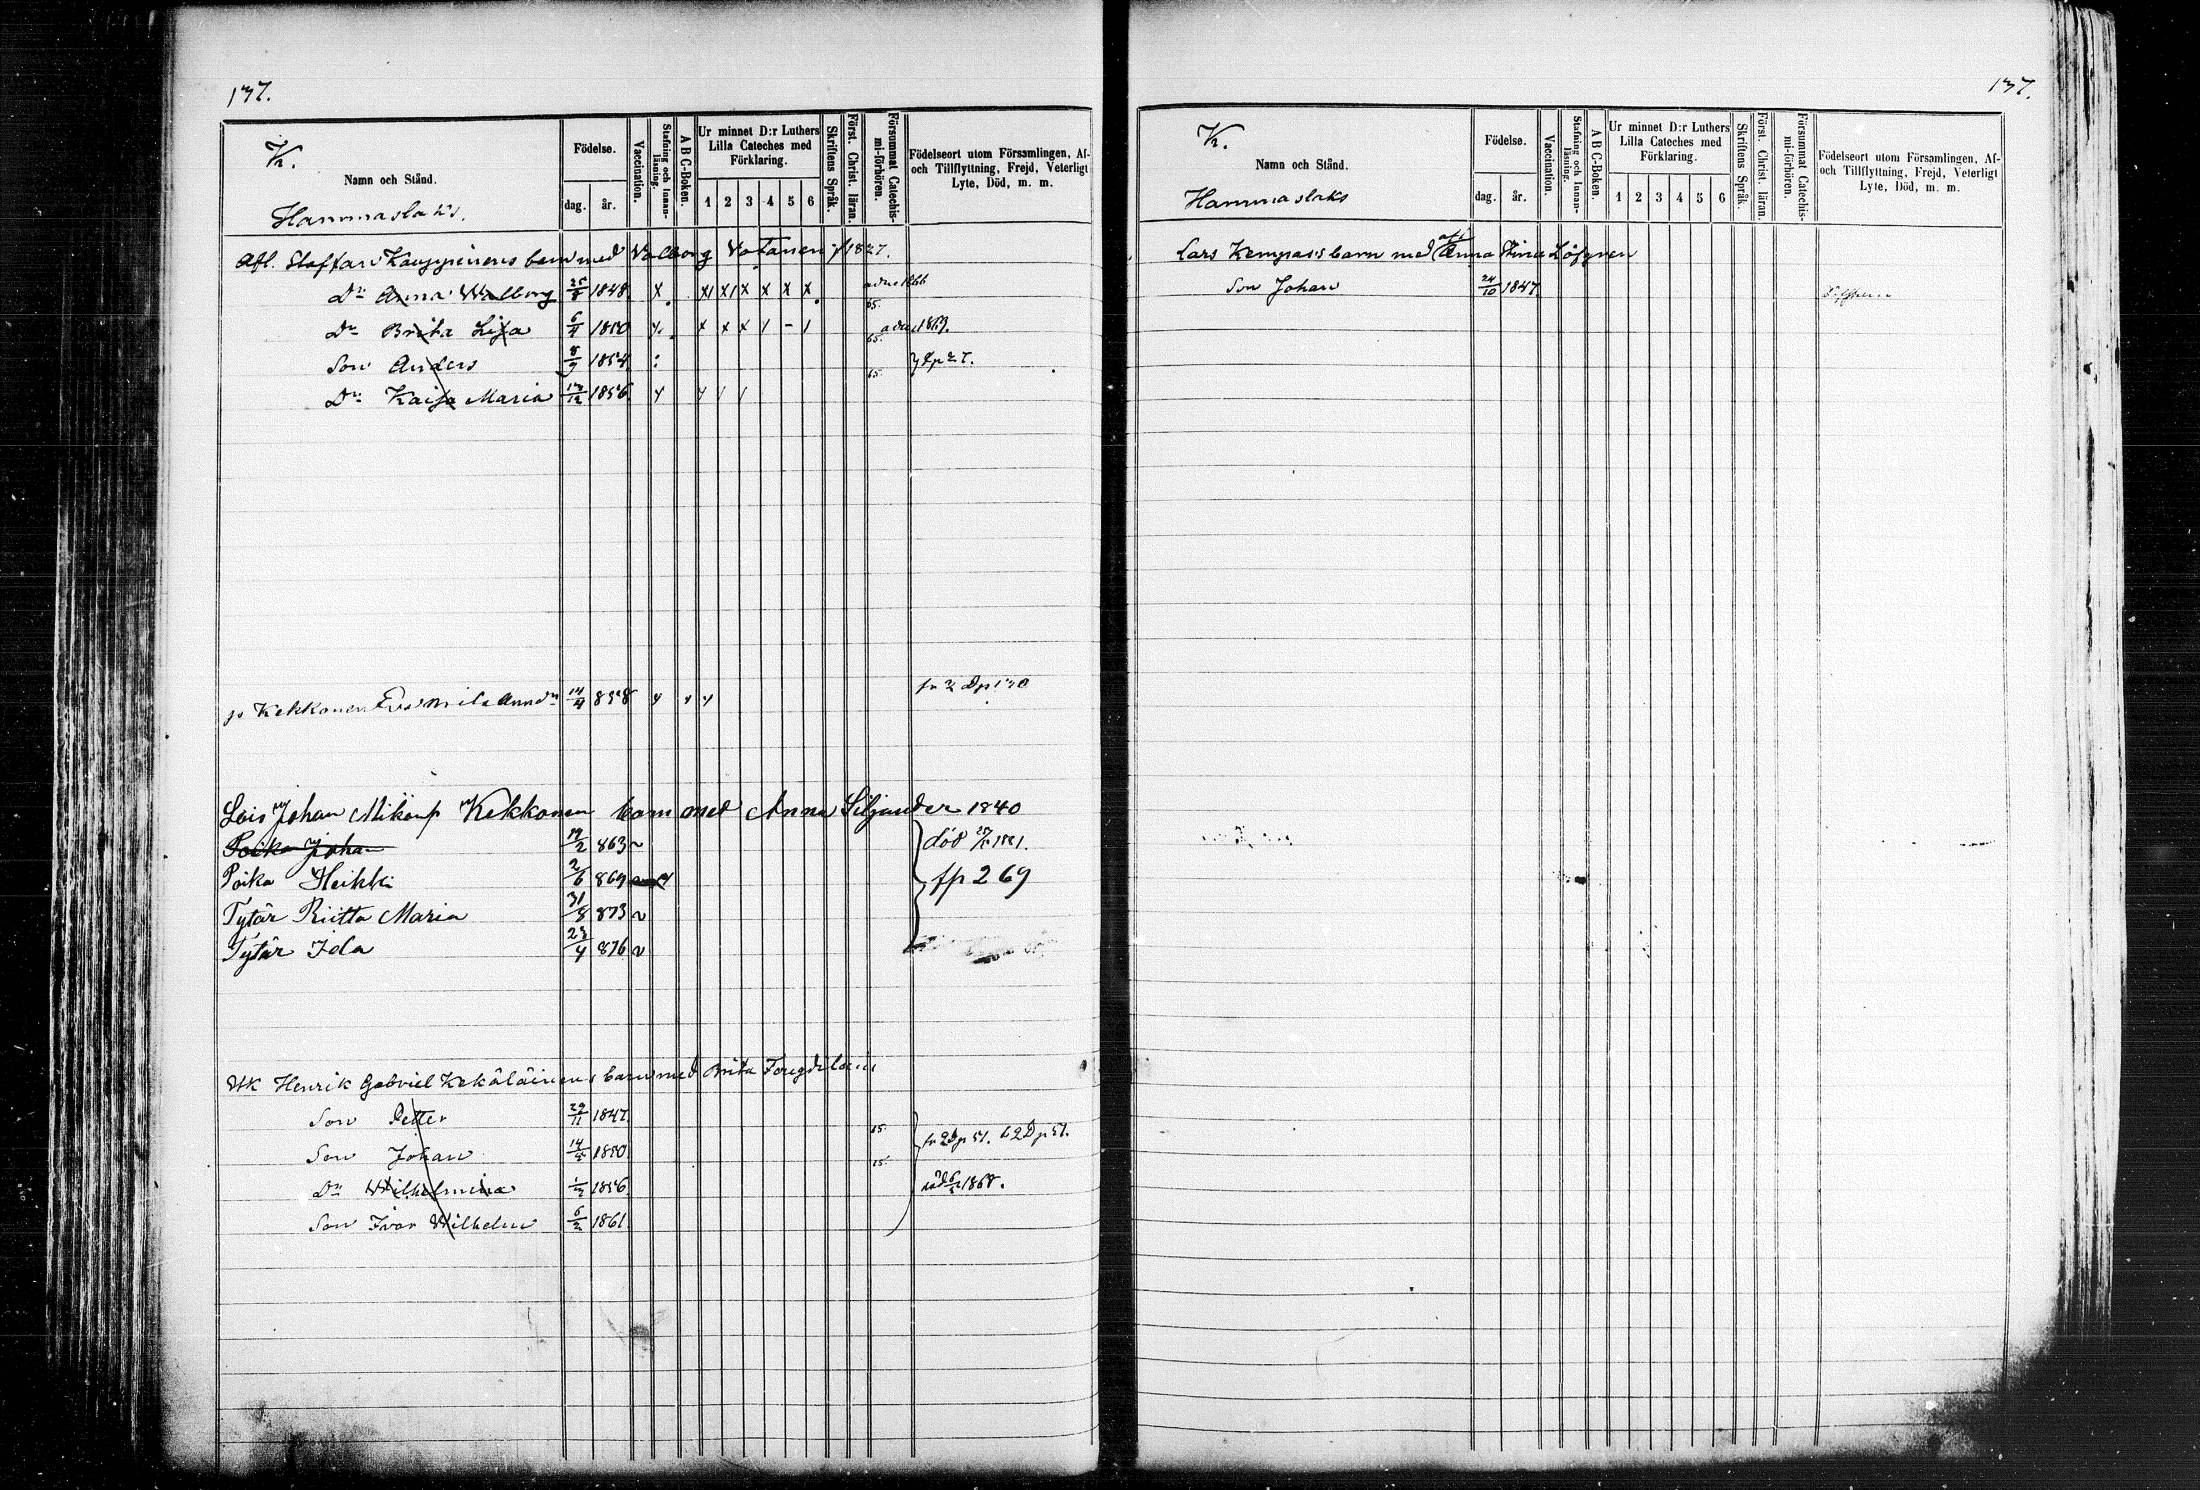 137.
K.
Namn och Stånd.
Hammaslaks.
Födelse.
dag. år.
Vaccination.
Stafning och Innanläsning.
A B C-Boken.
Ur minnet D:r Luthers Lilla Cateches med Förklaring.
1 2 3 4 5 6
Skriftens Språk.
Först. Christ. läran.
Försummat Catechismi-förhören.
Födelseort utom Församlingen, Af- och Tillflyttning, Frejd, Veterligt Lyte, Död, m. m.
Afl. Staffan Kauppinens barn med Valborg Vatanen f 1827.
Dr: Anna Walborg 25/8 1848. x x x x x x x 65. adm 1866
Dr Brita Lisa 6/4 1850 x x x / - / 65. adm 1869.
Son Anders 8/7 1854 65. Dp 27.
Dr: Kaisa Maria 13/12 1856.
Kekkonen Eva 14/4 858 fr 2 Dp 130
Lois Johan Mikonp Kekkonen barn med Anna Siljander 1840
Poika Johan 19/2 863 v död 1881.
Poika Heikki 2/6 869 fp 269
Tytär Riitta Maria 31/8 873 v
Tytär Ida 23/4 876 v
Henrik Gabriel Kekäläinens barn med Brita
Son Petter 29/11 1847. 65.
Son Johan 14/5 1850. fr 2 Dp 51. t 2 Dp 51.
Dr Wilhelmina 1856. död 1868.
Son Ivar Wilhelm 6/2 1861.
137.
K.
Namn och Stånd.
Hammaslaks
Födelse.
dag. år.
Vaccination.
Stafning och Innanläsning.
A B C-Boken.
Ur minnet D:r Luthers Lilla Cateches med Förklaring.
1 2 3 4 5 6
Skriftens Språk.
Först. Christ. läran.
Försummat Catechismi-förhören.
Födelseort utom Församlingen, Af- och Tillflyttning, Frejd, Veterligt Lyte, Död, m. m.
Lars Kempas's barn med afl Anna Stina Löfgren
Son Johan 24/10 1847.